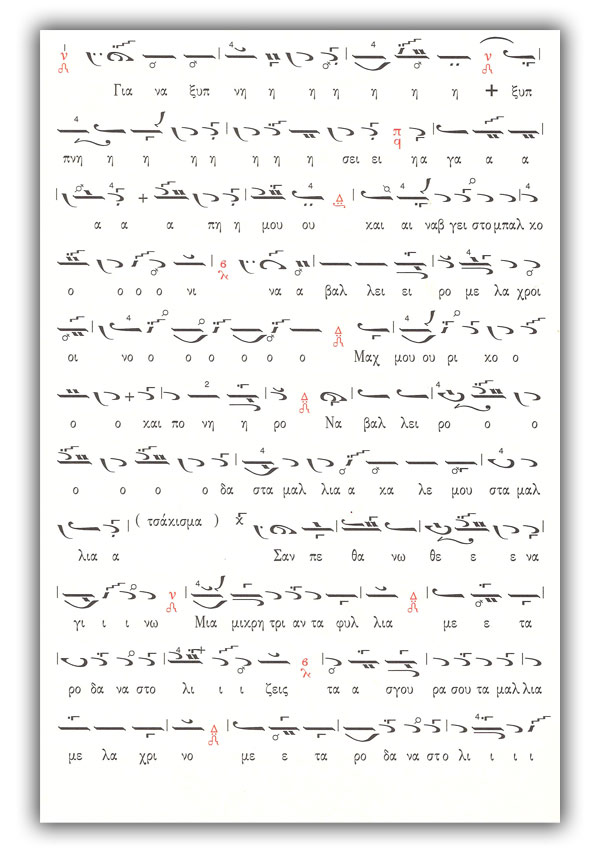 Για να ξυπ νη η η η η η η + ξυπ
πνη η η η η η η η σει ει η α γα α α
α α α πη η μου ου και αι ναβ γει στο μπαλ κο
ο ο ο ο νι να α βαλ λει ει ρο με λα χροι
οι νο ο ο ο ο ο ο Μαχ μου ου ρι κο ο
ο ο και πο νη η ρο Να βαλ λει ρο ο ο
ο ο ο ο δα στα μαλ λια α κα λε μου στα μαλ
λια α ( τσάκισμα ) Σαν πε θα νω θε ε ε να
γι ι ι νω Μια μικρη τρι αν τα φυλ λια με ε τα
ρο δα να στο λι ι ι ζεις τα α σγου ρα σου τα μαλ λια
με λα χρι νο με ε τα ρο δα να στο λι ι ι ι